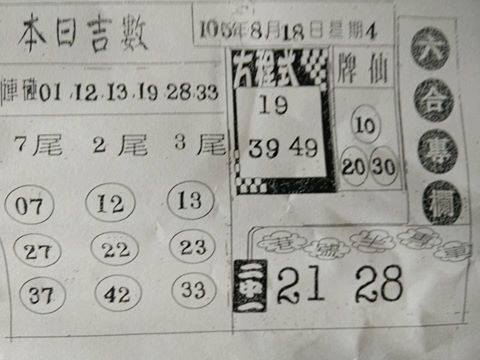 本日吉數
105年8月18日星期4
01.12.13.19.28.33
7尾 2尾 3尾
07 12 13
27 22 23
37 42 33
方程式
19
39 49
牌仙
10
20 30
六合專欄
二中一 21 28